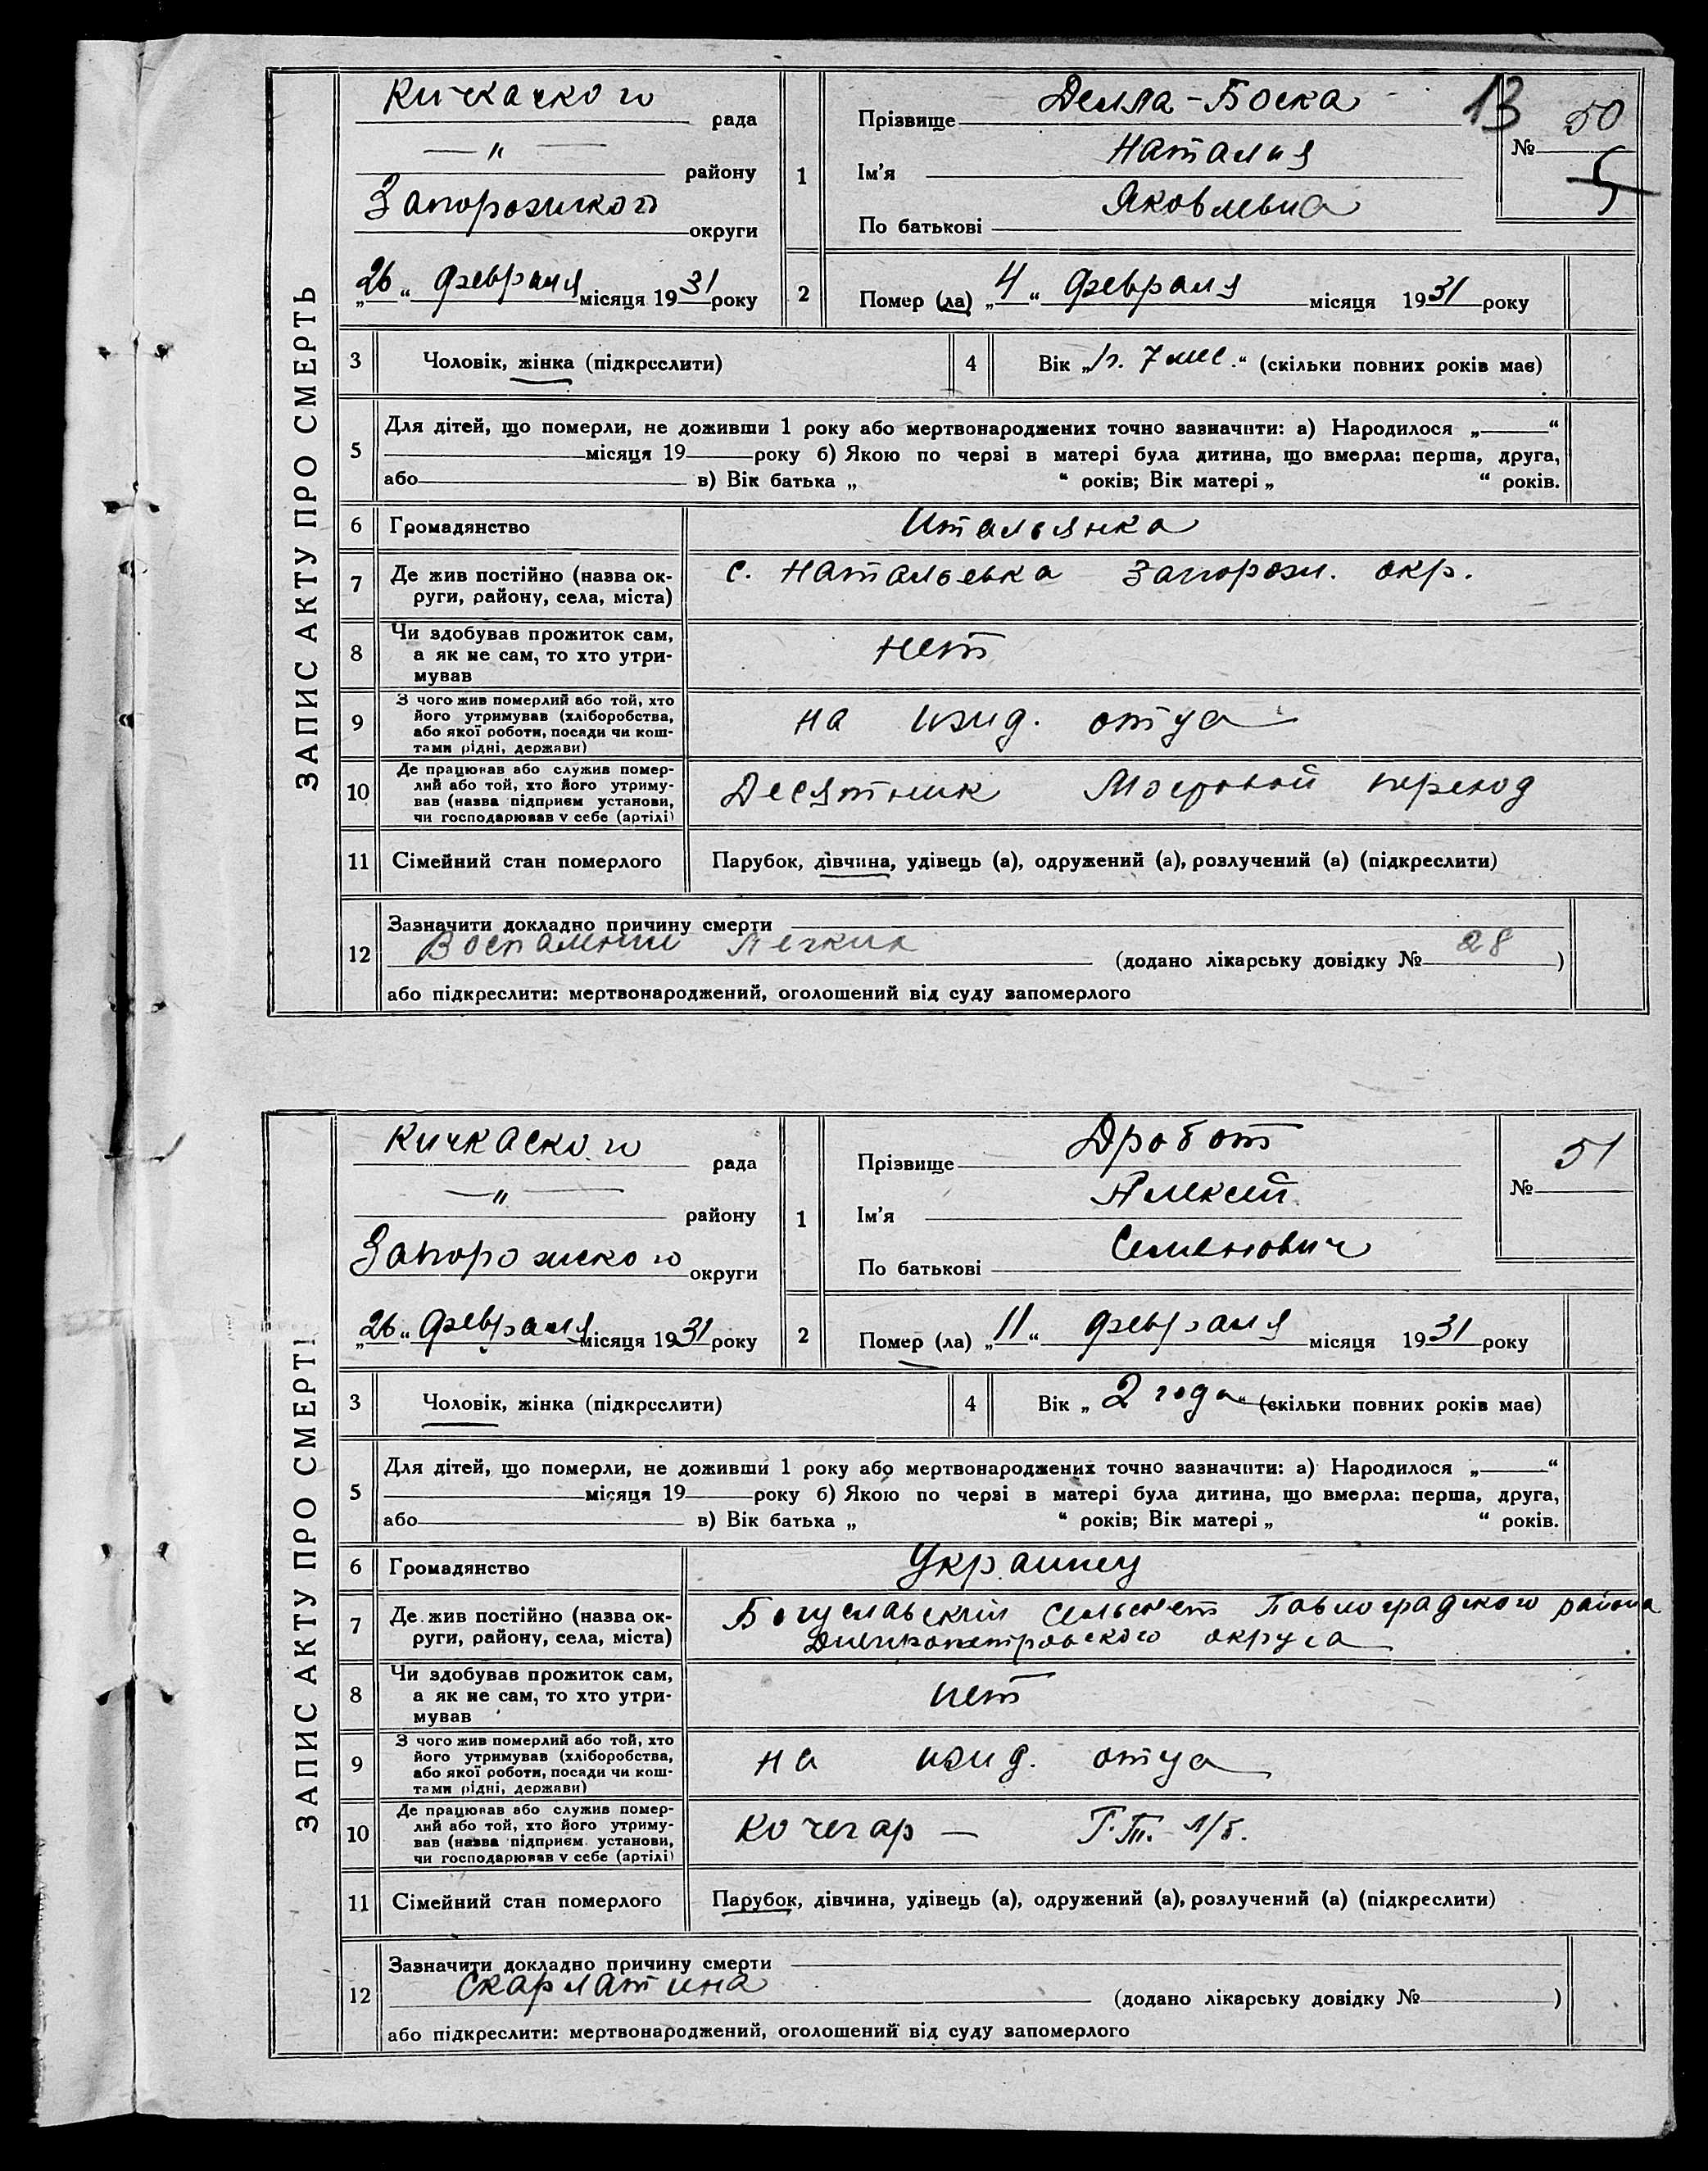 ЗАПИС АКТУ ПРО СМЕРТЬ
Кичкаского рада
— " — району
Запорожского округи
„26“ февраля місяця 1931 року
1 Прізвище Делла-Боска
Ім'я Наталия
По батькові Яковлевна
13
№ 50
5
2 Помер (ла) „4“ февраля місяця 1931 року
3 Чоловік, жінка (підкреслити)
4 Вік „1 г. 7 мес.“ (скільки повних років має)
5 Для дітей, що померли, не доживши 1 року або мертвонароджених точно зазначити: а) Народилося „——“
місяця 19 року б) Якою по черзі в матері була дитина, що вмерла: перша, друга,
або в) Вік батька „ “ років; Вік матері „ “ років.
6 Громадянство Итальянка
7 Де жив постійно (назва ок-
руги, району, села, міста) с. Натальевка Запорож. окр.
8 Чи здобував прожиток сам,
а як не сам, то хто утри-
мував нет
9 З чого жив померлий або той, хто
його утримував (хліборобства,
або якої роботи, посади чи кош-
тами рідні, держави) на ижд. отца
10 Де працював або служив помер-
лий або той, хто його утриму-
вав (назва підприєм установи,
чи господарював у себе (артілі) Десятник Мостовой переход
11 Сімейний стан померлого Парубок, дівчина, удівець (а), одружений (а), розлучений (а) (підкреслити)
12 Зазначити докладно причину смерти
Воспаление легких (додано лікарську довідку № 28)
або підкреслити: мертвонароджений, оголошений від суду запомерлого
ЗАПИС АКТУ ПРО СМЕРТІ
Кичкаского рада
— " — району
Запорожского округи
„26“ февраля місяця 1931 року
1 Прізвище Дробот
Ім'я Алексей
По батькові Семенович
№ 51
2 Помер (ла) „11“ февраля місяця 1931 року
3 Чоловік, жінка (підкреслити)
4 Вік „2 года“ (скільки повних років має)
5 Для дітей, що померли, не доживши 1 року або мертвонароджених точно зазначити: а) Народилося „——“
місяця 19 року б) Якою по черзі в матері була дитина, що вмерла: перша, друга,
або в) Вік батька „ “ років; Вік матері „ “ років.
6 Громадянство Украинец
7 Де жив постійно (назва ок-
руги, району, села, міста) Богуславский Сельсовет Павлоградского района
Днепропетровского округа
8 Чи здобував прожиток сам,
а як не сам, то хто утри-
мував нет
9 З чого жив померлий або той, хто
його утримував (хліборобства,
або якої роботи, посади чи кош-
тами рідні, держави) на ижд. отца
10 Де працював або служив помер-
лий або той, хто його утриму-
вав (назва підприєм. установи,
чи господарював у себе (артілі) Кочегар —
11 Сімейний стан померлого Парубок, дівчина, удівець (а), одружений (а), розлучений (а) (підкреслити)
12 Зазначити докладно причину смерти
Скарлатина (додано лікарську довідку № )
або підкреслити: мертвонароджений, оголошений від суду запомерлого